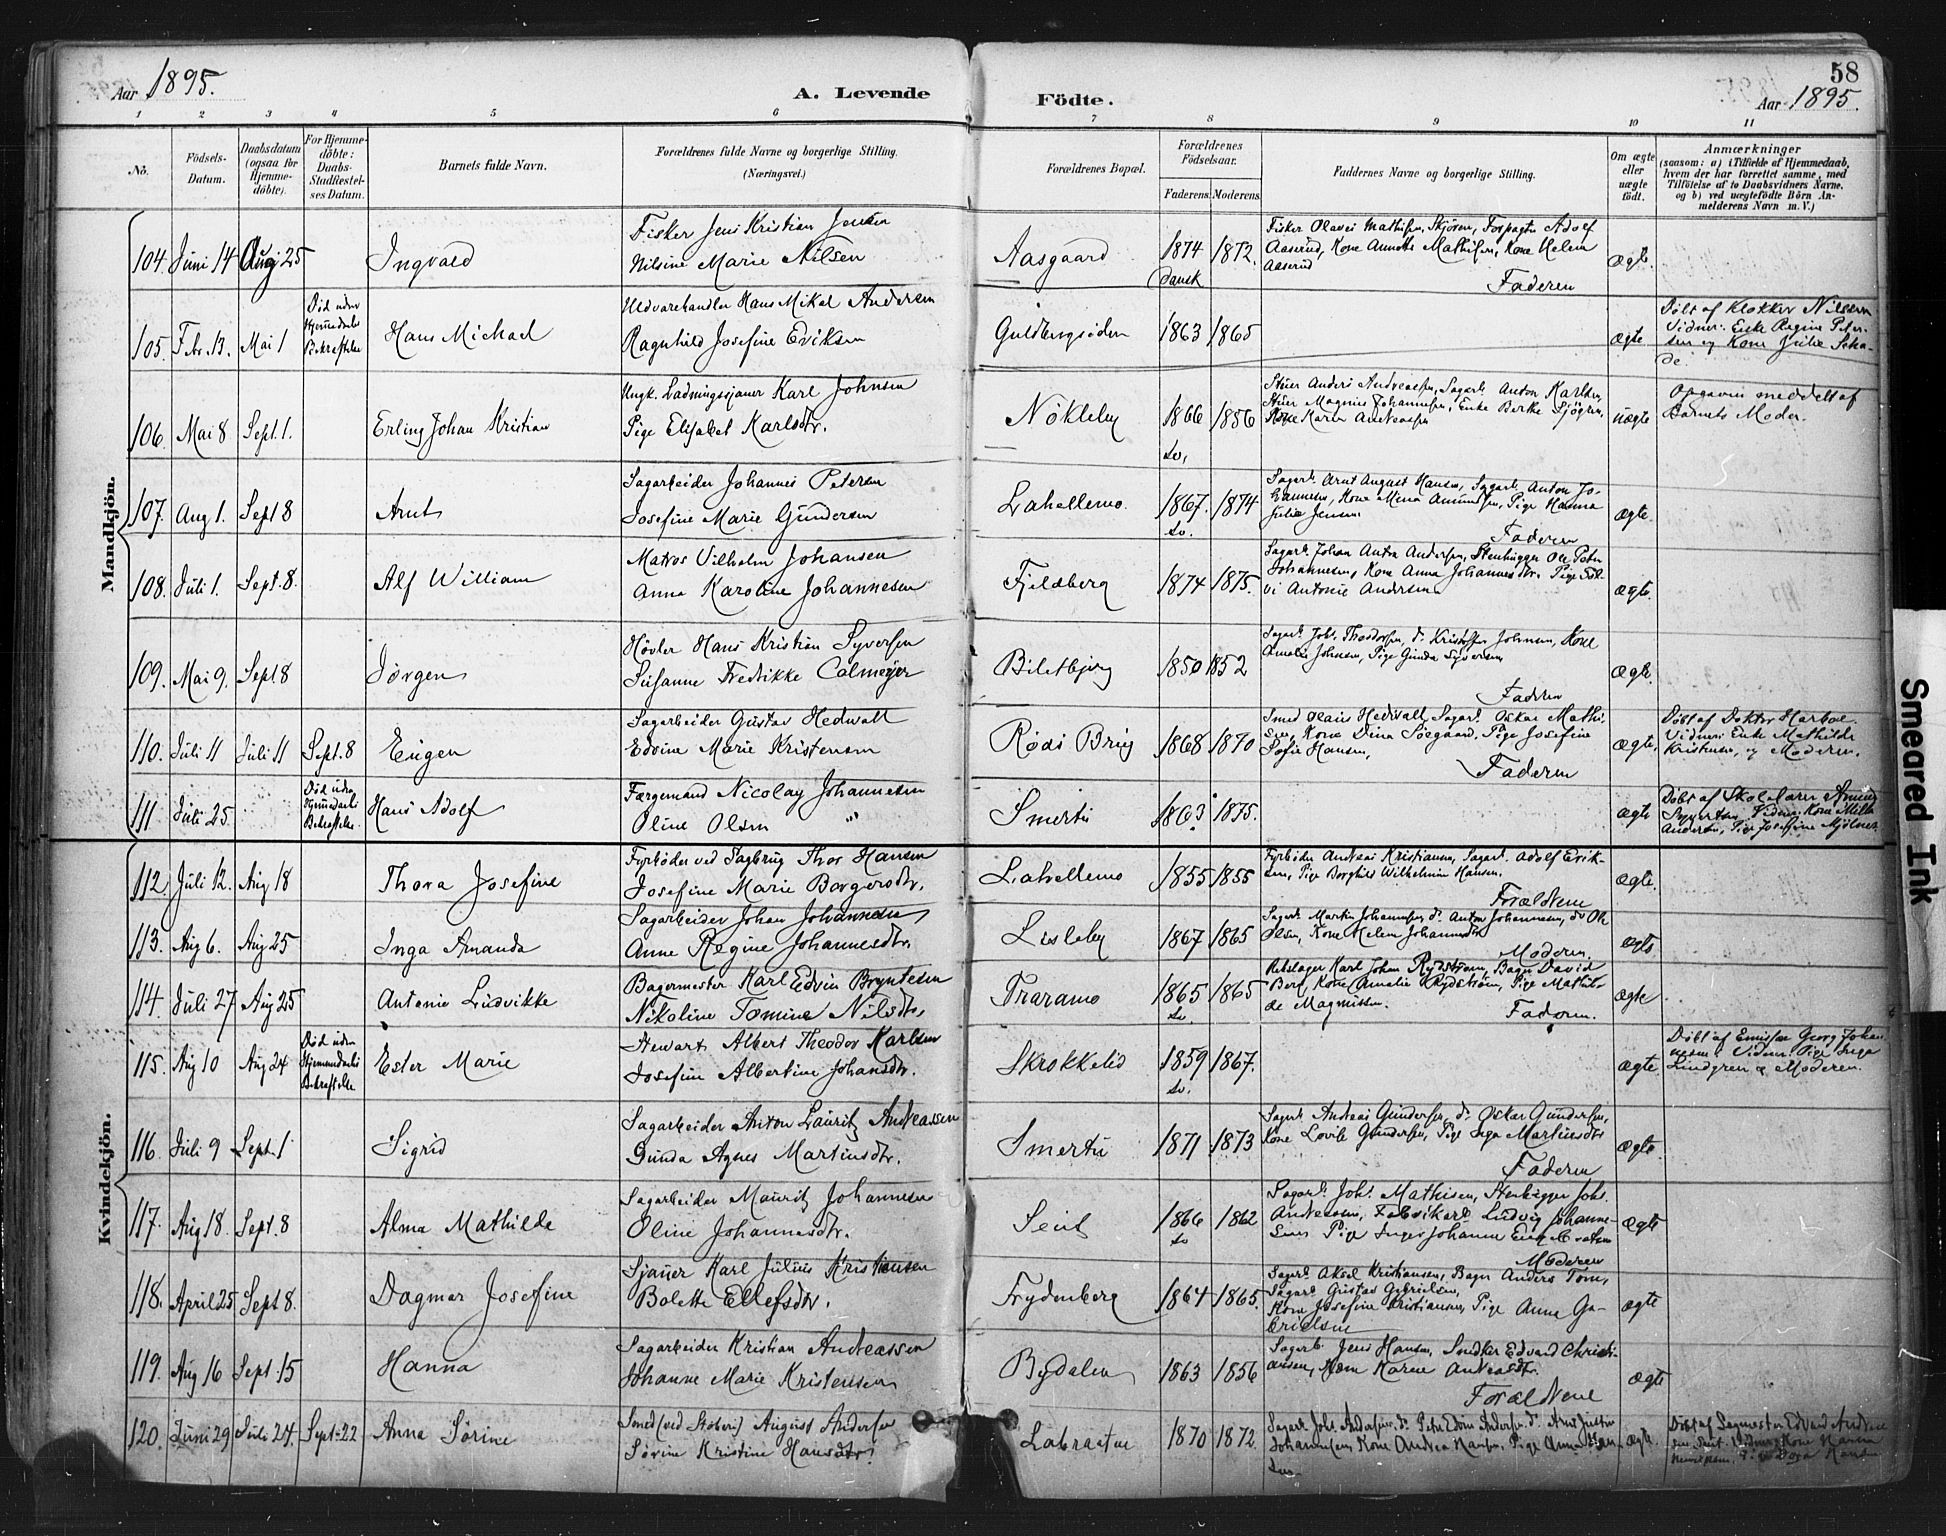 58
Aar 1895.
A. Levende Födte.
Aar 1895.
1 2 3 4 5 6 7 8 9 10 11
No.
Födsels-Datum.
Daabsdatum (ogsaa for Hjemme-döbte).
For Hjemme-döbte: Daabs-Stadfæstel-ses Datum.
Barnets fulde Navn.
Forældrenes fulde Navne og borgerlige Stilling.
(Næringsvei.)
Forældrenes Bopæl.
Forældrenes Födselsaar.
Faderens Moderens
Faddernes Navne og borgerlige Stilling.
Om ægte eller uægte födt.
Anmærkninger
(saasom: a) i Tilfælde af Hjemmedaab, hvem der har forrettet samme, med Tilföielse af to Daabsvidners Navne, og b) ved uægtefödte Börn An-melderens Navn m. V.)
Mandkjön.
104. Juni 14 Aug 25 Ingvald
Fisker Jens Kristian Jensen
Nilsine Marie Nilsen
Aasgaard 1874 1872.
Dansk
Fisker Olaves Mathisen, Skjøren, Forpagter Adolf
Aaserud, Kone Annette Mathisen, Kone Helen
Aaserud
Faderen
ægte.
105. Febr. 13. Mai 1
Død uden
Hjemmedaabs
Bekræftelse
Hans Michael
Uldvarehandler Hans Mikal Andersen
Ragnhild Josefine Eriksen
Guldbergsiden 1863 1865
ægte
Døbt af Klokker Nilssen
Vidner: Enke Regine Peter-
sen og Kone Julie Scha-
de.
106. Mai 8 Sept. 1. Erling Johan Kristian
Ungk. Ladningssjauer Karl Johnsen
Pige Elisabet Karlsdtr.
Nökleby 1866 1856
sv.
Stuer Anders Andreassen, Sagarb. Anton Karlsen,
Stuer Magnus Johannesen, Enke Berte Sjögren,
Kone Karen Andreassen
uægte
Opgaven meddelt af
Barnets Moder.
107. Aug 1. Sept 8 Arnt
Sagarbeider Johannes Petersen
Josefine Marie Gundersen
Lahellemo. 1867. 1874
sv.
Sagarb. Arnt August Hansen, Sagarb. Anton Jo-
hannesen, Kone Mina Amundsen, Pige Hanna
Julie Jensen
Faderen
ægte.
108. Juli 1. Sept. 8. Alf William
Matros Vilhelm Johansen
Anna Karoline Johannesen
Fjeldberg 1874 1875.
Sagarb. Johan Anton Andersen, Stenhugger Ole Peter
Johannesen, Kone Anna Johannesdtr. Pige Sol-
vi Antonie Andersen
ægte.
109. Mai 9. Sept 8 Jörgen
Høvler Hans Kristian Syversen
Susanne Fredrikke Calmeyer
Biletbjerg 1850 1852
Sagarb. Johs. Theodorsen, do Kristoffer Johnsen, Kone
Amalie Johnsen, Pige Gunda Syversen
Faderen
ægte.
110. Juli 11 Juli 11 Sept. 8 Eugen
Sagarbeider Gustav Hedwall
Edvine Marie Kristensen
Röds Brug 1868 1870
Smed Olaus Hedvall, Sagarb. Oskar Mathi-
sen, Kone Dina Soegaard, Pige Josefine
Sofie Hansen,
Faderen
ægte.
Døbt af Doktor Harboe
Vidner: Enke Mathilde
Kristensen, og Moderen.
111. Juli 25.
Død uden
Hjemmedaabs
Bekræftelse
Hans Adolf
Færgemand Nicolay Johannesen
Oline Olsen "
Smertu 1863 1875.
ægte
Døbt af Skolelærer Anund
Syvertsen, Vidner: Kone Milla
Andersen, Pige Josefine Mjölner
Kvindekjön.
112. Juli 12. Aug 18 Thora Josefine
Fyrböder ved Sagbrug Thor Hansen
Josefine Marie Borgersdtr.
Lahellemo 1855 1855
Fyrbøder Andreas Kristiansen, Sagarb. Adolf Erik-
sen, Pige Borghild Wilhelmine Hansen.
Forældrene
ægte.
113. Aug 6. Aug 25 Inga Amanda
Sagarbeider Johan Johannesen
Anne Regine Johannesdtr.
Lisleby 1867 1865
Sagarb. Martin Johannesen, do Anton Johannesen, do Ole
Olsen, Kone Helene Johannesdtr
Moderen.
ægte
114. Juli 27 Aug 25 Antonie Ludvikke
Bagermester Karl Edvin Bryntesen
Nikoline Tomine Nilsdtr.
Traramo 1865 1865
sv.
Rebslager Karl Johan Rydström, Bager David
Berf, Kone Amalie Rydström, Pige Mathil-
de Magnussen.
Faderen.
ægte
115. Aug 10 Aug 24
Død uden
Hjemmedaabs
Bekræftelse
Ester Marie
Stewart Albert Theodor Karlsen
Josefine Albertine Johansdtr.
Skrokkelid 1859 1867.
sv.
ægte.
Döbt af Emissær Georg Johan
nesen. Vidner: Pige Inga
Lindgren & Moderen.
116. Juli 9 Sept. 1 Sigrid
Sagarbeider Anton Lauritz Andreassen
Gunda Agnes Martinsdtr.
Smertu 1871 1873
Sagarb. Andreas Gundersen, do Oskar Gundersen,
Kone Lovise Gundersen, Pige Inga Martinsdtr
Faderen
ægte.
117. Aug 18. Sept. 8 Alma Mathilde
Sagarbeider Mauritz Johannesen
Oline Johannesdtr.
Seiet 1866 1862
sv
Sagarb. Johs. Mathisen, Stenhugger Johs.
Andreassen, Fabrikarb. Ludvig Johanne-
sen, Pige Inger Johanne
Moderen
ægte
118. April 25 Sept 8. Dagmar Josefine
Sjauer Karl Julius Kristiansen
Bolette Ellefsdtr.
Frydenberg 1864 1865.
Sagarb. Aksel Kristiansen, Bager Anders Tom,
Sagarb. Gustav Gabrielsen,
Kone Josefine Kristiansen, Pige Anna Ga-
brielsen
ægte
119. Aug 16 Sept. 15 Hanna
Sagarbeider Kristian Andreassen
Johanne Marie Kristensen
Bydalen 1863 1856
Sagarb. Jens Hansen, Snedker Edvard Christi-
ansen, Kone Karen Andreasdtr.
Forældrene
ægte
120. Juni 29 Juli 24. Sept. 22 Anna Sörine
Smed (ved Støberi) August Andersen
Sörine Kristine Hansdtr.
Labraaten 1870 1872
Sagarb. Johs. Andersen, do Peter Edvin Andersen, do Arnt Justin
Johannesen, Kone Andrea Hansen, Pige Anna Han-
sen
ægte.
Døbt af Sagmester Edvard Andrea
sen Seiet. Vidner: Kone Karen
Henriksen, Pige Dora Hansen
Smeared Ink